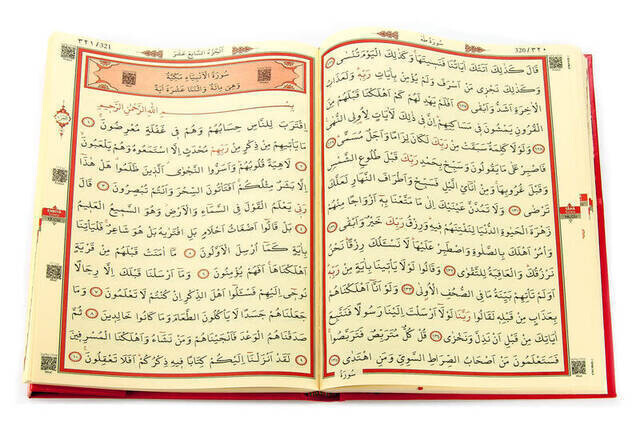 ٣٢٠/320
سُورَةُ طٰهٰ
قَالَ كَذٰلِكَ اَتَتْكَ اٰيَاتُنَا فَنَسِيتَهَا وَكَذٰلِكَ الْيَوْمَ تُنْسٰى
وَكَذٰلِكَ نَجْزِى مَنْ اَسْرَفَ وَلَمْ يُؤْمِنْ بِاٰيَاتِ رَبِّهِ وَلَعَذَابُ
الْاٰخِرَةِ اَشَدُّ وَاَبْقٰى اَفَلَمْ يَهْدِ لَهُمْ كَمْ اَهْلَكْنَا قَبْلَهُمْ مِنَ
الْقُرُونِ يَمْشُونَ فِى مَسَاكِنِهِمْ اِنَّ فِى ذٰلِكَ لَاٰيَاتٍ لِاُولِى النُّهٰى
وَلَوْلَا كَلِمَةٌ سَبَقَتْ مِنْ رَبِّكَ لَكَانَ لِزَامًا وَاَجَلٌ مُسَمًّى
فَاصْبِرْ عَلٰى مَا يَقُولُونَ وَسَبِّحْ بِحَمْدِ رَبِّكَ قَبْلَ طُلُوعِ الشَّمْسِ
وَقَبْلَ غُرُوبِهَا وَمِنْ اٰنَائِ الَّيْلِ فَسَبِّحْ وَاَطْرَافَ النَّهَارِ لَعَلَّكَ
تَرْضٰى وَلَا تَمُدَّنَّ عَيْنَيْكَ اِلٰى مَا مَتَّعْنَا بِهِ اَزْوَاجًا مِنْهُمْ
زَهْرَةَ الْحَيٰوةِ الدُّنْيَا لِنَفْتِنَهُمْ فِيهِ وَرِزْقُ رَبِّكَ خَيْرٌ وَاَبْقٰى
وَأْمُرْ اَهْلَكَ بِالصَّلٰوةِ وَاصْطَبِرْ عَلَيْهَا لَا نَسْـَٔلُكَ رِزْقًا نَحْنُ
نَرْزُقُكَ وَالْعَاقِبَةُ لِلتَّقْوٰى وَقَالُوا لَوْلَا يَأْتِينَا بِاٰيَةٍ مِنْ رَبِّهِ
اَوَلَمْ تَأْتِهِمْ بَيِّنَةُ مَا فِى الصُّحُفِ الْاُولٰى وَلَوْ اَنَّا اَهْلَكْنَاهُمْ
بِعَذَابٍ مِنْ قَبْلِهِ لَقَالُوا رَبَّنَا لَوْلَا اَرْسَلْتَ اِلَيْنَا رَسُولًا فَنَتَّبِعَ
اٰيَاتِكَ مِنْ قَبْلِ اَنْ نَذِلَّ وَنَخْزٰى قُلْ كُلٌّ مُتَرَبِّصٌ فَتَرَبَّصُوا
فَسَتَعْلَمُونَ مَنْ اَصْحَابُ الصِّرَاطِ السَّوِيِّ وَمَنِ اهْتَدٰى
سُورَةُ
اَلْجُزْءُ السَّابِعُ عَشَرَ
٣٢١/321
سُورَةُ الْاَنْبِيَاءِ مَكِّيَّةٌ
وَهِىَ مِائَةٌ وَاثْنَتَا عَشْرَةَ اٰيَةً
بِسْمِ اللّٰهِ الرَّحْمٰنِ الرَّحِيمِ
اِقْتَرَبَ لِلنَّاسِ حِسَابُهُمْ وَهُمْ فِى غَفْلَةٍ مُعْرِضُونَ ١
مَا يَأْتِيهِمْ مِنْ ذِكْرٍ مِنْ رَبِّهِمْ مُحْدَثٍ اِلَّا اسْتَمَعُوهُ وَهُمْ يَلْعَبُونَ
٢ لَاهِيَةً قُلُوبُهُمْ وَاَسَرُّوا النَّجْوٰى الَّذِينَ ظَلَمُوا هَلْ هٰذَا
اِلَّا بَشَرٌ مِثْلُكُمْ اَفَتَأْتُونَ السِّحْرَ وَاَنْتُمْ تُبْصِرُونَ ٣ قَالَ
رَبِّى يَعْلَمُ الْقَوْلَ فِى السَّمَاءِ وَالْاَرْضِ وَهُوَ السَّمِيعُ الْعَلِيمُ
٤ بَلْ قَالُوا اَضْغَاثُ اَحْلَامٍ بَلِ افْتَرٰيهُ بَلْ هُوَ شَاعِرٌ فَلْيَأْتِنَا
بِاٰيَةٍ كَمَا اُرْسِلَ الْاَوَّلُونَ ٥ مَا اٰمَنَتْ قَبْلَهُمْ مِنْ قَرْيَةٍ
اَهْلَكْنَاهَا اَفَهُمْ يُؤْمِنُونَ ٦ وَمَا اَرْسَلْنَا قَبْلَكَ اِلَّا رِجَالًا
نُوحِى اِلَيْهِمْ فَسْـَٔلُوا اَهْلَ الذِّكْرِ اِنْ كُنْتُمْ لَا تَعْلَمُونَ ٧ وَمَا
جَعَلْنَاهُمْ جَسَدًا لَا يَأْكُلُونَ الطَّعَامَ وَمَا كَانُوا خَالِدِينَ ٨ ثُمَّ
صَدَقْنَاهُمُ الْوَعْدَ فَاَنْجَيْنَاهُمْ وَمَنْ نَشَاءُ وَاَهْلَكْنَا الْمُسْرِفِينَ
٩ لَقَدْ اَنْزَلْنَا اِلَيْكُمْ كِتَابًا فِيهِ ذِكْرُكُمْ اَفَلَا تَعْقِلُونَ ١٠